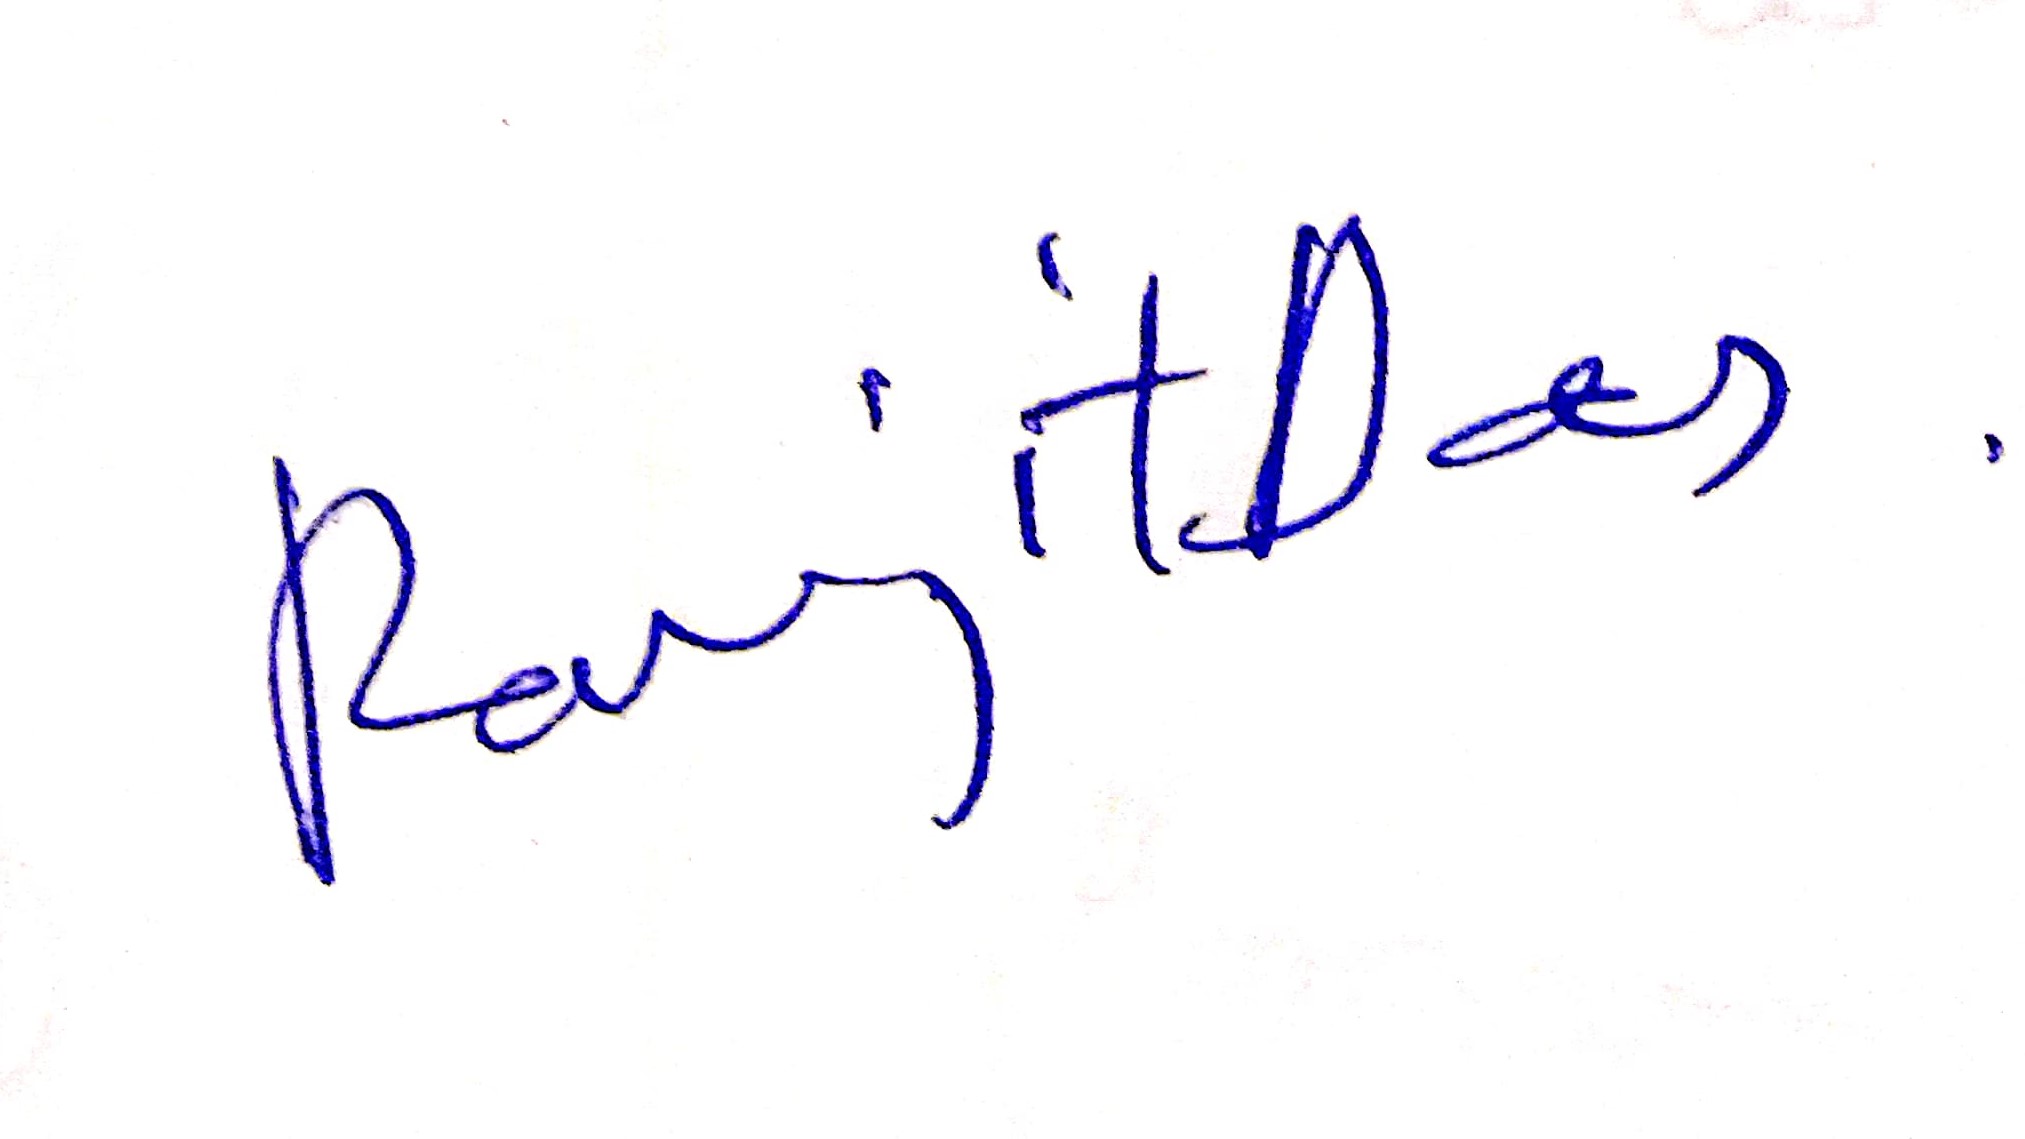 Ranjit Das.